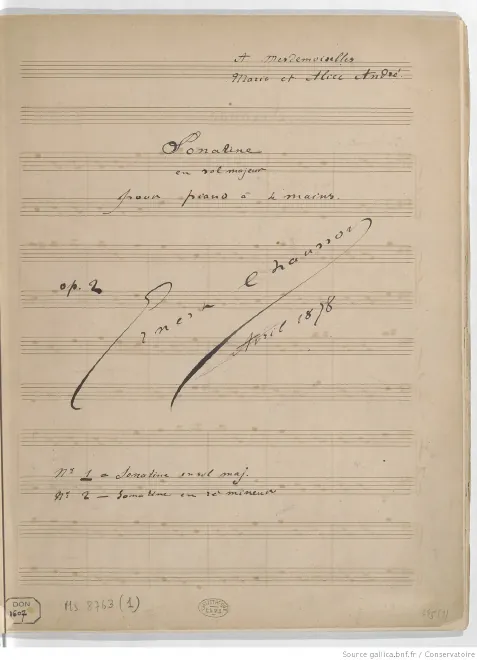 A Mesdemoiselles
Marie et Alice André.
Sonatine
en sol majeur
pour piano à 4 mains.
op. 2
Ernest Chausson
Avril 1878
Nº 1 – Sonatine en sol maj.
Nº 2 – Sonatine en ré mineur
DON
1607
MS 8763 (1)
Source gallica.bnf.fr / Conservatoire